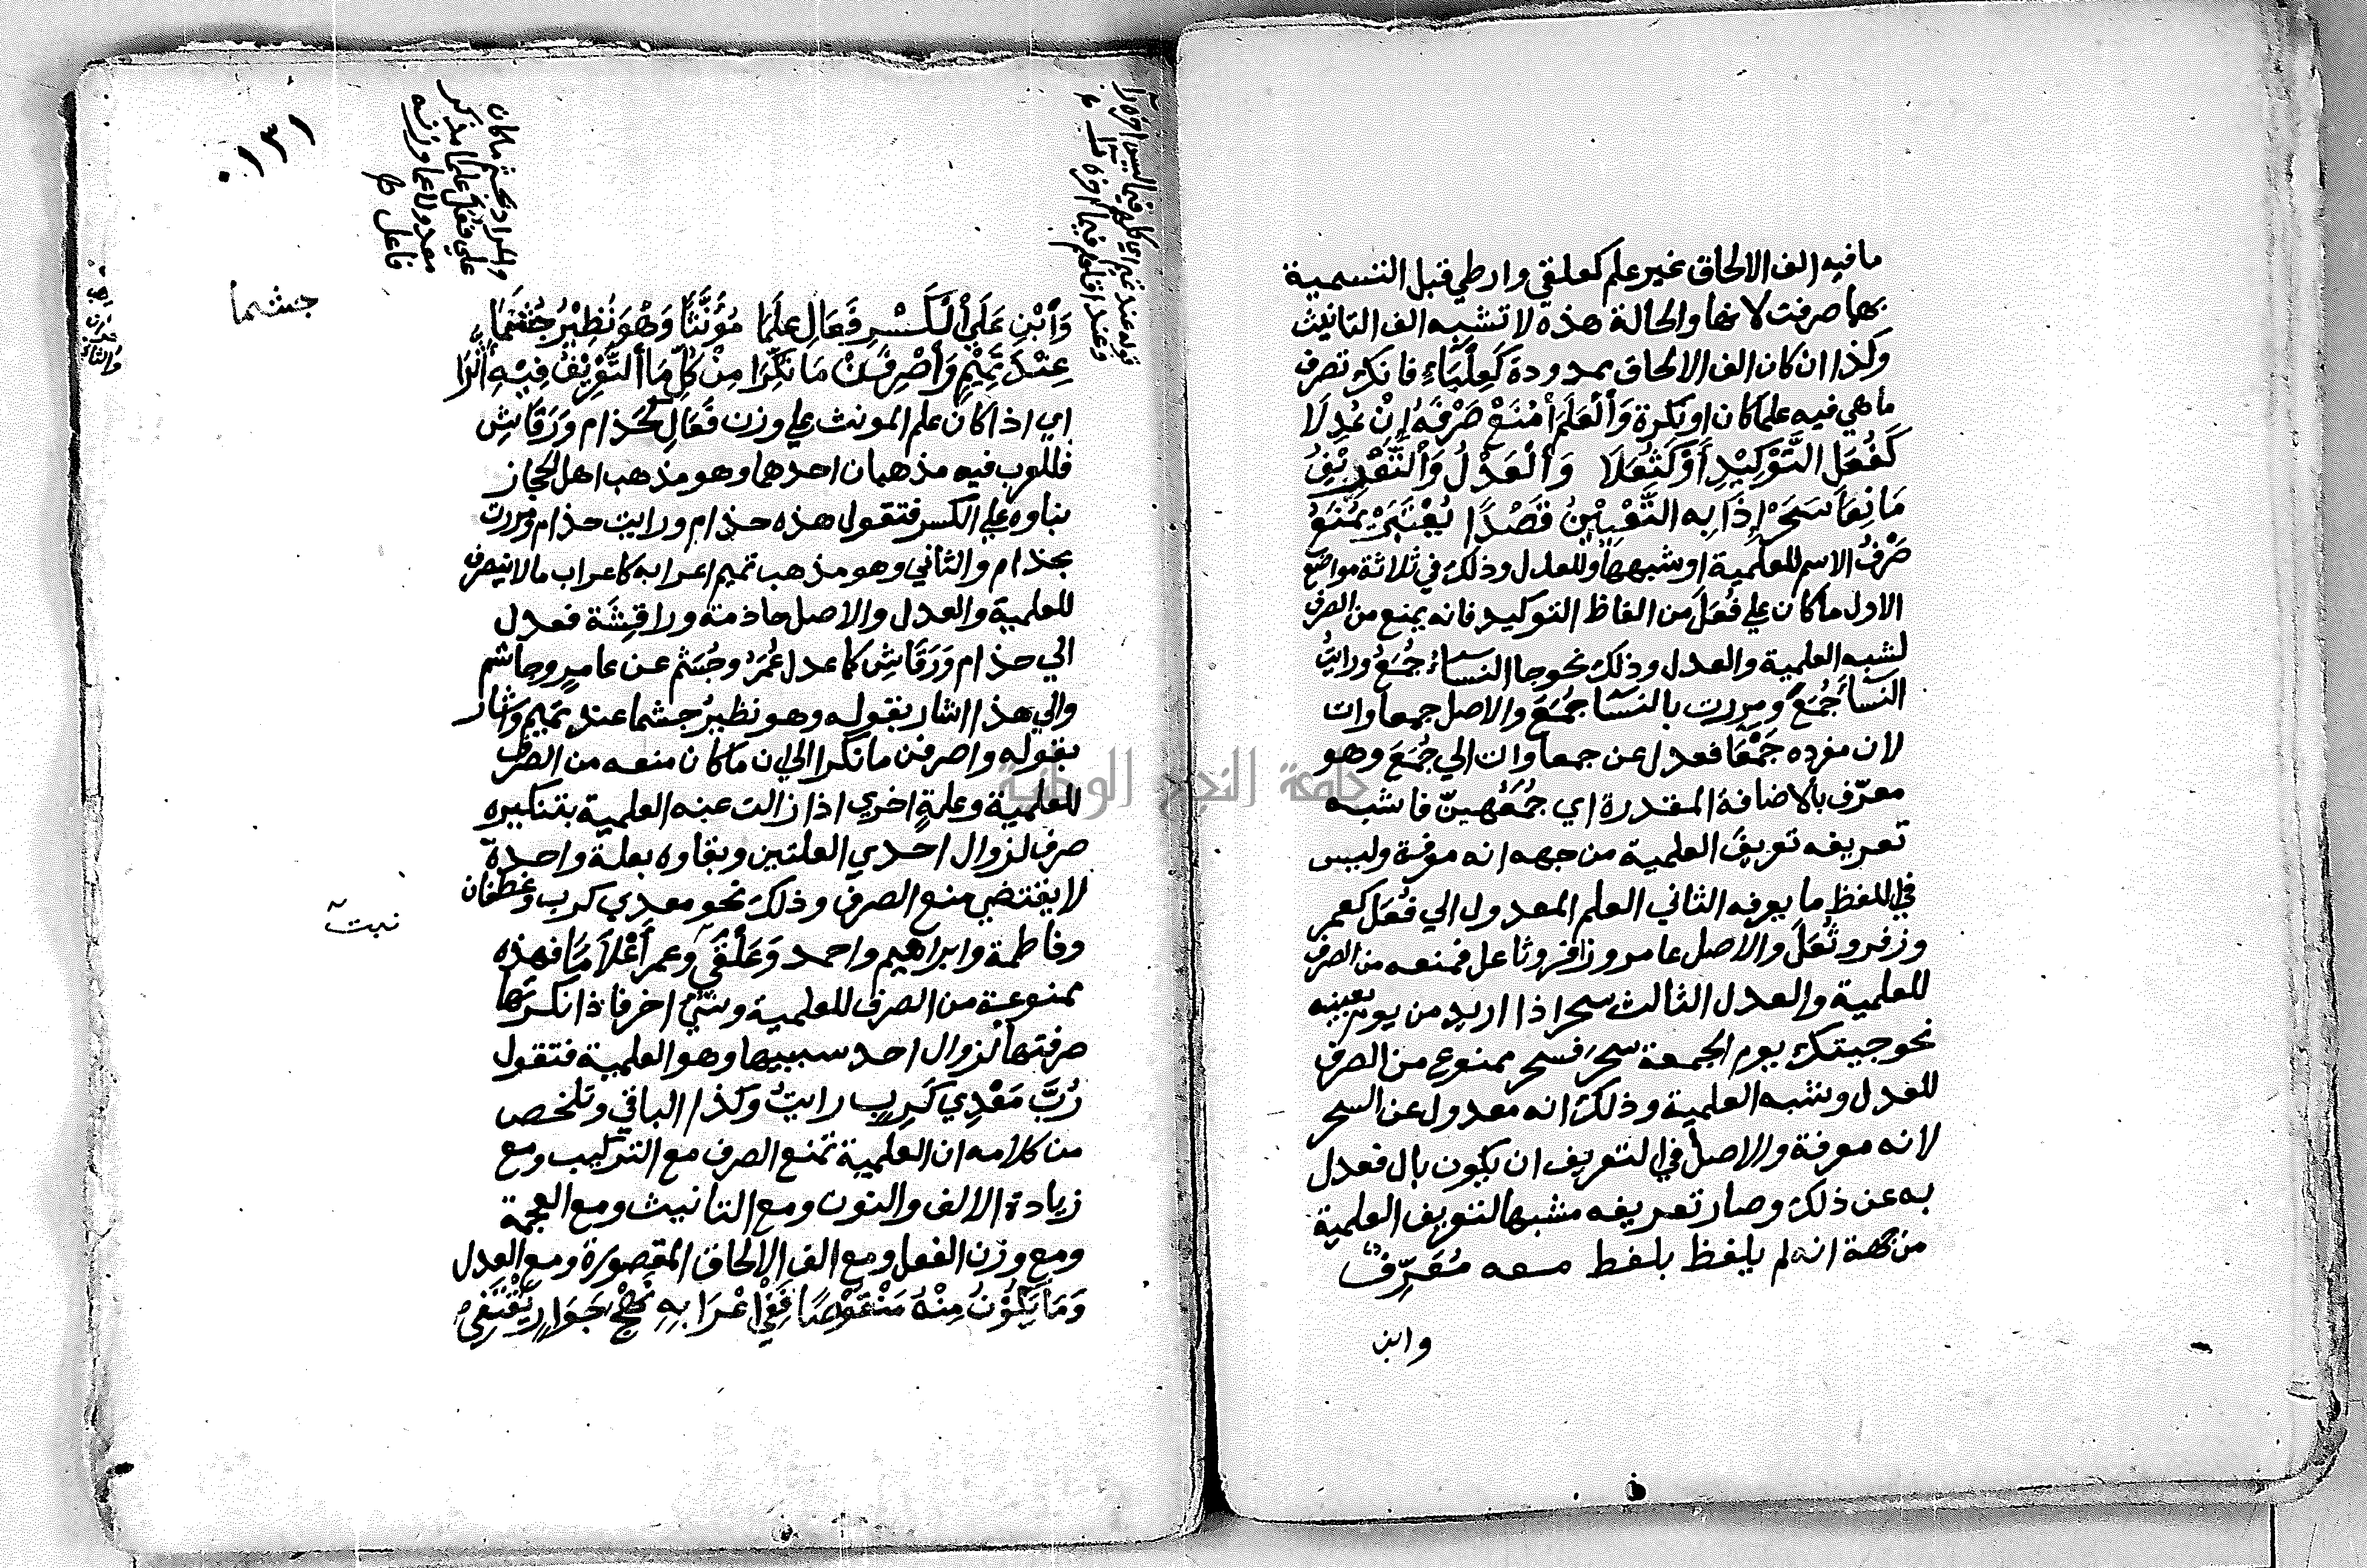 ما فيه الف الالحاق غير علم كعلقي وارطي قبل التسمية
بهما صرفت لانها والحالة هذه لا تشبه الف التانيث
وكذا ان كان الف الالحاق ممدودة كَعِلْبَاءٍ فانك تصرف
ما هي فيه علما كان او نكرة وَالْعَلَمَ امْنَعْ صَرْفَهُ اِنْ عُدِلَا
كَفُعَلِ التَّوْكِيْدِ أَوْ كَثُعَلَا وَالْعَدْلُ وَالتَّعْرِيْفُ
مَانِعَا سَحَرْ إِذَا بِهِ التَّعْيِيْنُ قَصْدًا يُعْتَبَرْ يُمْنَعُ
صَرْفُ الاسم للعلمية او شبهها وللعدل وذلك في ثلاثة مواضع
الاول ما كان علي فُعَلَ من الفاظ التوكيد فانه يمنع من الصرف
لشبه العلمية والعدل وذلك نحو جا النسآءُ جُمَعُ ورايتُ
النسآءَ جُمَعَ ومررت بالنسآ جُمَعَ والاصل جمعاوات
لان مفرده جَمْعَا فعدل عن جمعاوات الي جُمَعَ وهو
معرّف بالاضافة المقدرة اي جُمَعُهنّ فاشبه
تعريفه تعريفَ العلمية من جهه انه معرفة وليس
في اللفظ ما يعرفه الثاني العلم المعدول الي فُعَل كعمر
وزفر وثُعَلَ والاصل عامر وزافر وثاعل فمنعه من الصرف
للعلمية والعدل الثالث سحر اذا اريد من يوم بعينه
نحو جيتك يوم الجمعة سحرَ فسحر ممنوع من الصرف
للعدل وشبه العلمية وذلك انه معدول عن السحر
لانه معرفة والاصل في التعريف ان يكون بال فعدل
به عن ذلك وصار تعريفه مشبها لتعريف العلمية
من جهة انه لم يلفظ بلفظ معه مُعَرِّف
وابن
١٣١
والمراد بجشم ما كان
علي فُعَل علما مذكر
معدولا عما وزنه
فاعل
جشما
وَابْنِ عَلَى الْكَسْرِ فَعَالِ عَلَمَا مُؤَنَّثًا وَهْوَ نَظِيْرُ جُشَمَا
عِنْدَ تَمِيْمٍ وَاصْرِفَنْ مَا نُكِّرَا مِنْ كُلِّ مَا التَّعْرِيْفُ فِيْهِ أَثَّرَا
اي اذا كان علم المونث علي وزن فَعَالِ كحذام وَرَقَاشِ
فللعرب فيه مذهبان احدهما وهو مذهب اهل الحجاز
بناوه علي الكسر فتقول هذه حذام ورايت حذام ومررت
بحذام والثاني وهو مذهب تميم اعرابه كاعراب ما لا ينصرف
للعلمية والعدل والاصل حاذمة وراقِشَة فعدل
الي حذام وَرَقَاشِ كما عدل عُمَرُ وجُشَم عن عامرٍ وجاشم
والي هذا اشار بقوله وهو نظيرُ جشما عند تميم واشار
بقوله واصرفن ما نكرا الي ان ما كان منعه من الصرف
للعلمية وعلةٍ اخري اذا زالت عنه العلمية بتنكيره
صرف لزوال احدي العلتين وبقاوه بعلة واحدة
لا يقتضي منع الصرف وذلك نحو معدي كرب وغطفان
وفاطمة وابراهيم واحمد وَعَلْقَي وعمر أعْلَامًا فهذه
ممنوعة من الصرف للعلمية وشئ اخر فاذا نكرتها
صرفتها لزوال احد سببيها وهو العلمية فتقول
رُبَّ مَعْدِي كَرِبٍ رايتُ وكذا الباقي وتلخص
من كلامه ان العلمية تمنع الصرف مع التركيب ومع
زيادة الالف والنون ومع التانيث ومع العجمة
ومع وزن الفعل ومع الف الالحاق المقصورة ومع العدل
وَمَا يَكُوْنُ مِنْهُ مَنْقُوْصًا فَفِيْ اعْرَابِهِ نَهْجَ جَوَارٍ يَقْتَفِيْ
جامعة النجاح الوطنية